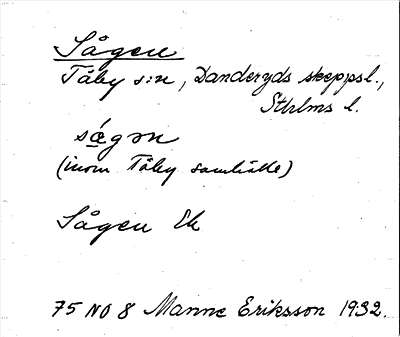 Sågen
Täby s:n, Danderyds skeppsl.,
Sthlms l.
(inom Täby samhälle)
Sågen Ek
75 NO 8 Manne Eriksson 1932.